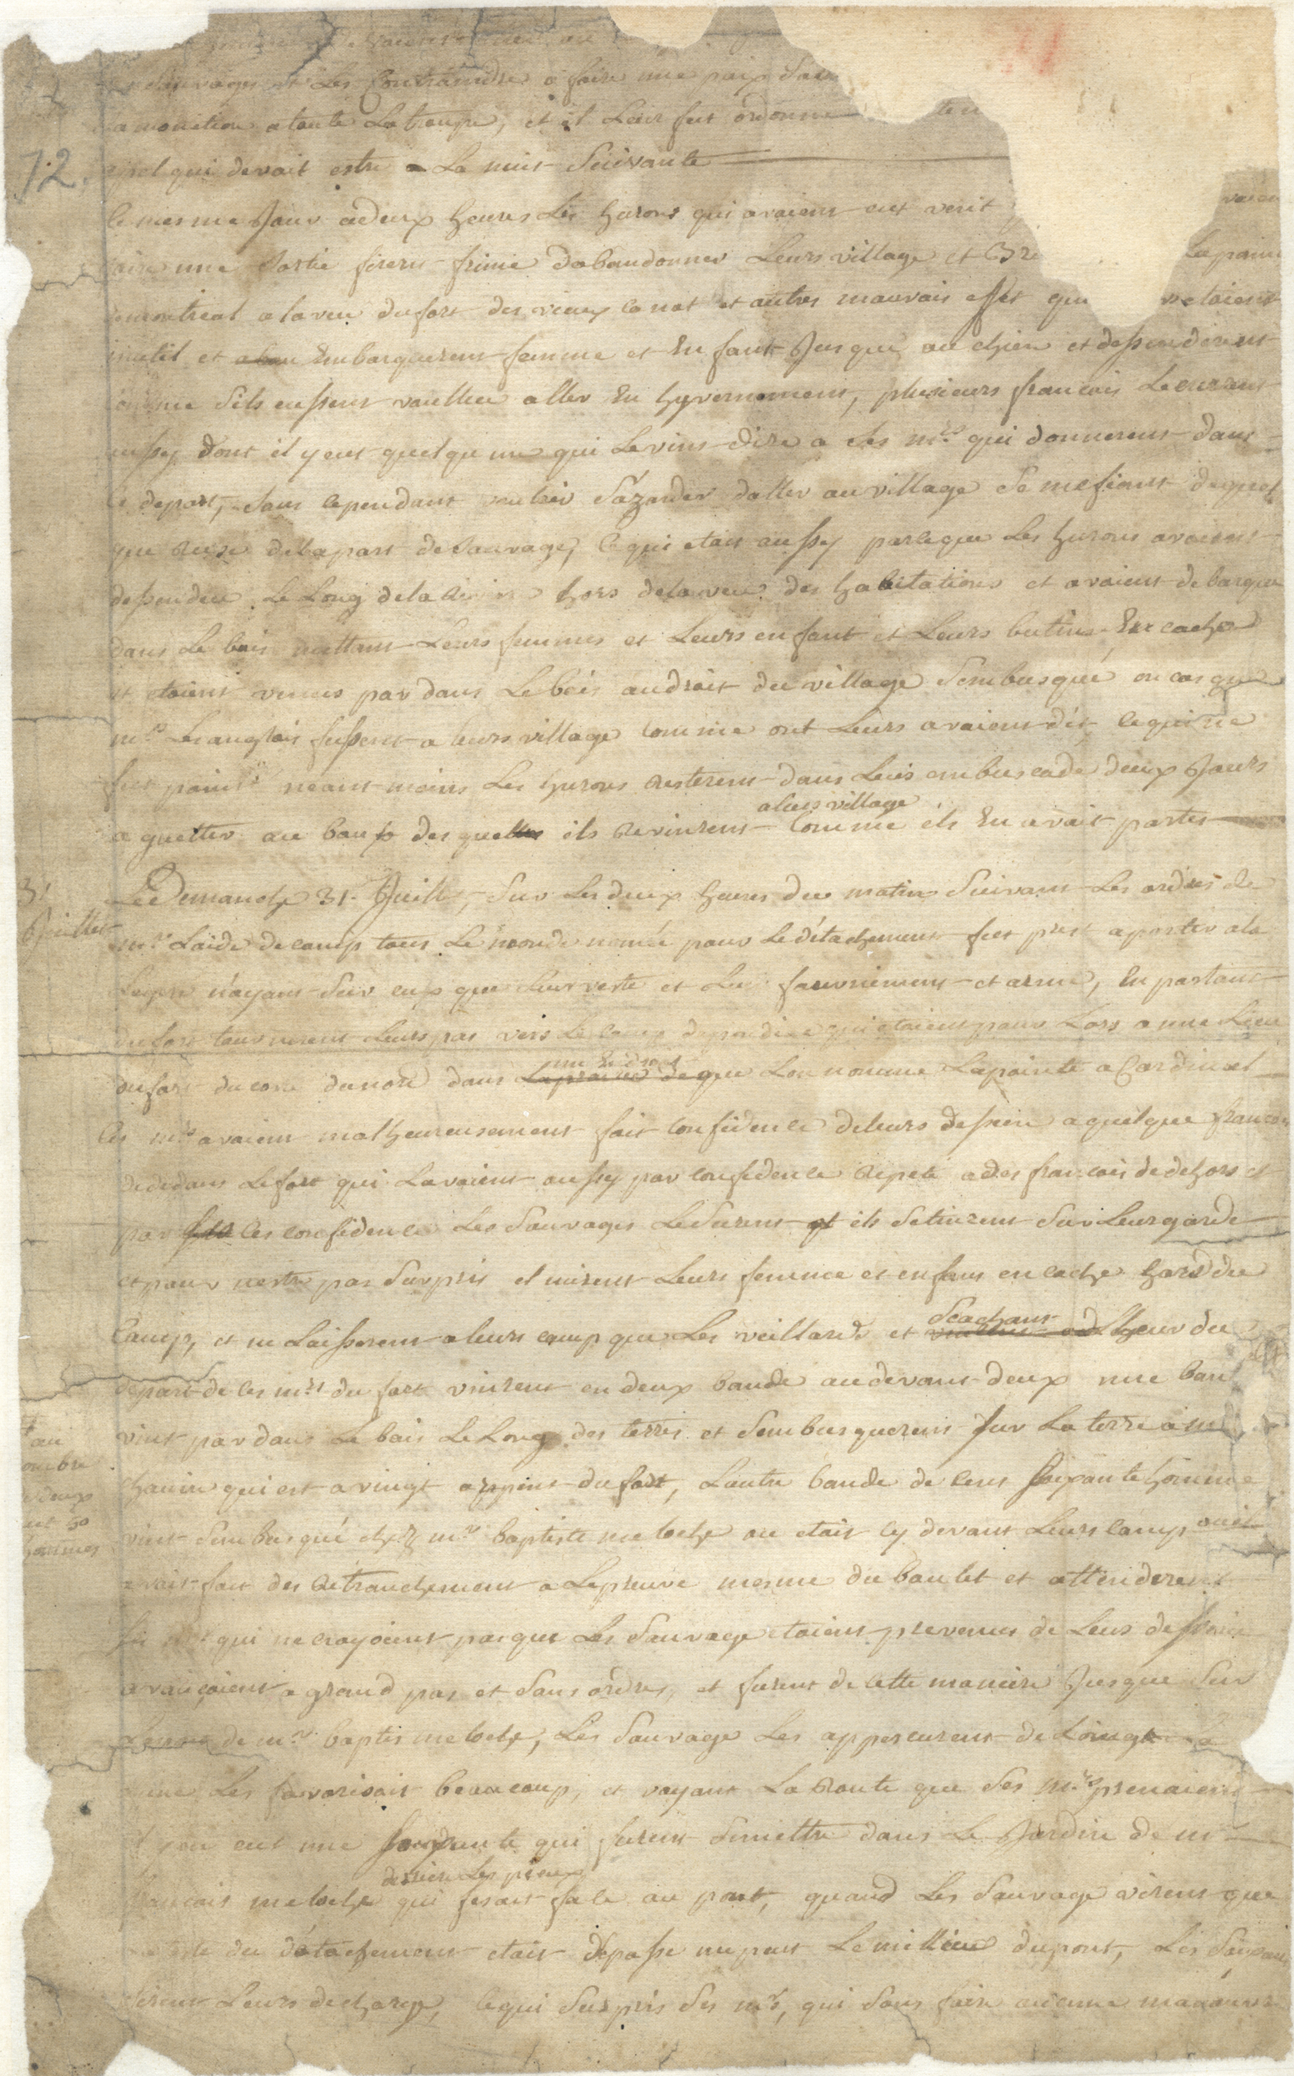 sauvages et Les Contraindre a faire une paix
amonition a toute La troupe, et il Leur fut ordonné
72.
qui devait estre La nuit Suivante
Le mesme Jour a deux heures Les hurons qui avaient eut vent
faire une Sortie firent frime dabandonner Leurs village et
montreal a la veu du fort des vieux canot et autres mauvais effet qui etaient
inutil et Embarquerent femme et Enfant Jusque au chien et dessendirent
comme Sils eussent voullu aller En hyvernement, plusieurs francois Le
aussy dont il y eut quelqu un qui Le vint dire a ces mrs qui donnerent dans
Le depart, Sans cependant vouloir Sazarder daller au village Se mefiant de quel
que Ruse de la part de Sauvage, Ce qui etait aussy parceque Les hurons avaient
dessendu Le Long de la Riviere hors de la veu des habitations et avaient debarqué
dans Le bois mettant Leurs femmes et Leurs enfant et Leurs butins En cache
et etaient venus par dans Le bois audroit du village Sembusqué en cas que
mrs Le anglois fussent a leurs village comme ont Leurs avaient dit ce qui ne
fut point neantmoins Les hurons Resterent dans Leurs embuscade deux Jours
a leurs village
a guetter au bout desquelles ils Revinrent Comme ils En avait partes
31 Juillet
Le Dimanche 31 Juillt, Sur Les deux heures du matin Suivant Les ordres de
mr Laide de camp tous Le monde nommé pour Le détachement fut prest a porter a la
Legere n'ayant Sur eux que Leur veste et Leur fourniment et arme, En partant
du fort tournerent Leurs pas vers Le camp de pondiac qui etaient pour Lors a une Lieu
une Endroit
du fort du coté du nord dans La prairie de que Lon nomme La pointe a Cardinal
Ces mrs avaient malheureusement fait Confidence de Leurs dessein a quelque francois
de dedans Le fort qui Lavoient aussy par confidence Repeté a des francois de dehors et
par ces confidence Les Sauvages Le Surent et ils Se tinrent Sur Leur garde
et pour nestre pas Surpris il mirent Leurs femme et enfans en cache hors du
Scachant
Camp, et ne Laisserent a leurs camp que Les veillards et Lheur du
depart de ces mrs du fort vinrent en deux bande au devant deux une ban
vint par dans Le bois Le Long des terres et Sembusquerent Sur La terre a mr
au nombre deux cent 50 hommes
chauvin qui est a vingt arpent du fort, Lautre bande de cent Soixante homme
vint Sembusqué chez mr baptiste meloche ou etait cy devant Leurs camp ou il
avait fait des Retranchement a Lepreuve mesme du boulet et attenderent
qui ne croyoient pas que Les Sauvage etaient prevenus de Leurs dessein
avançoient a grand pas et Sans ordres, et furent de cette maniere Jusque Sur
de mr baptis meloche, Les Sauvage Les apperceurent de Loing
Les favorisait beaucoup, et voyant La Route que Ses mrs prenaient
y en eut une Soixante qui furent Semettre dans Le Jardin de mr
derriere Les pieux
francois meloche qui fesait face au pont, quand Les Sauvage virent que
du détachement etait dépassé un peut Le millieu du pont, Les Soixante
firent Leurs decharge, ce qui Surpris Ses mrs, qui Sans faire aucune manœuvre